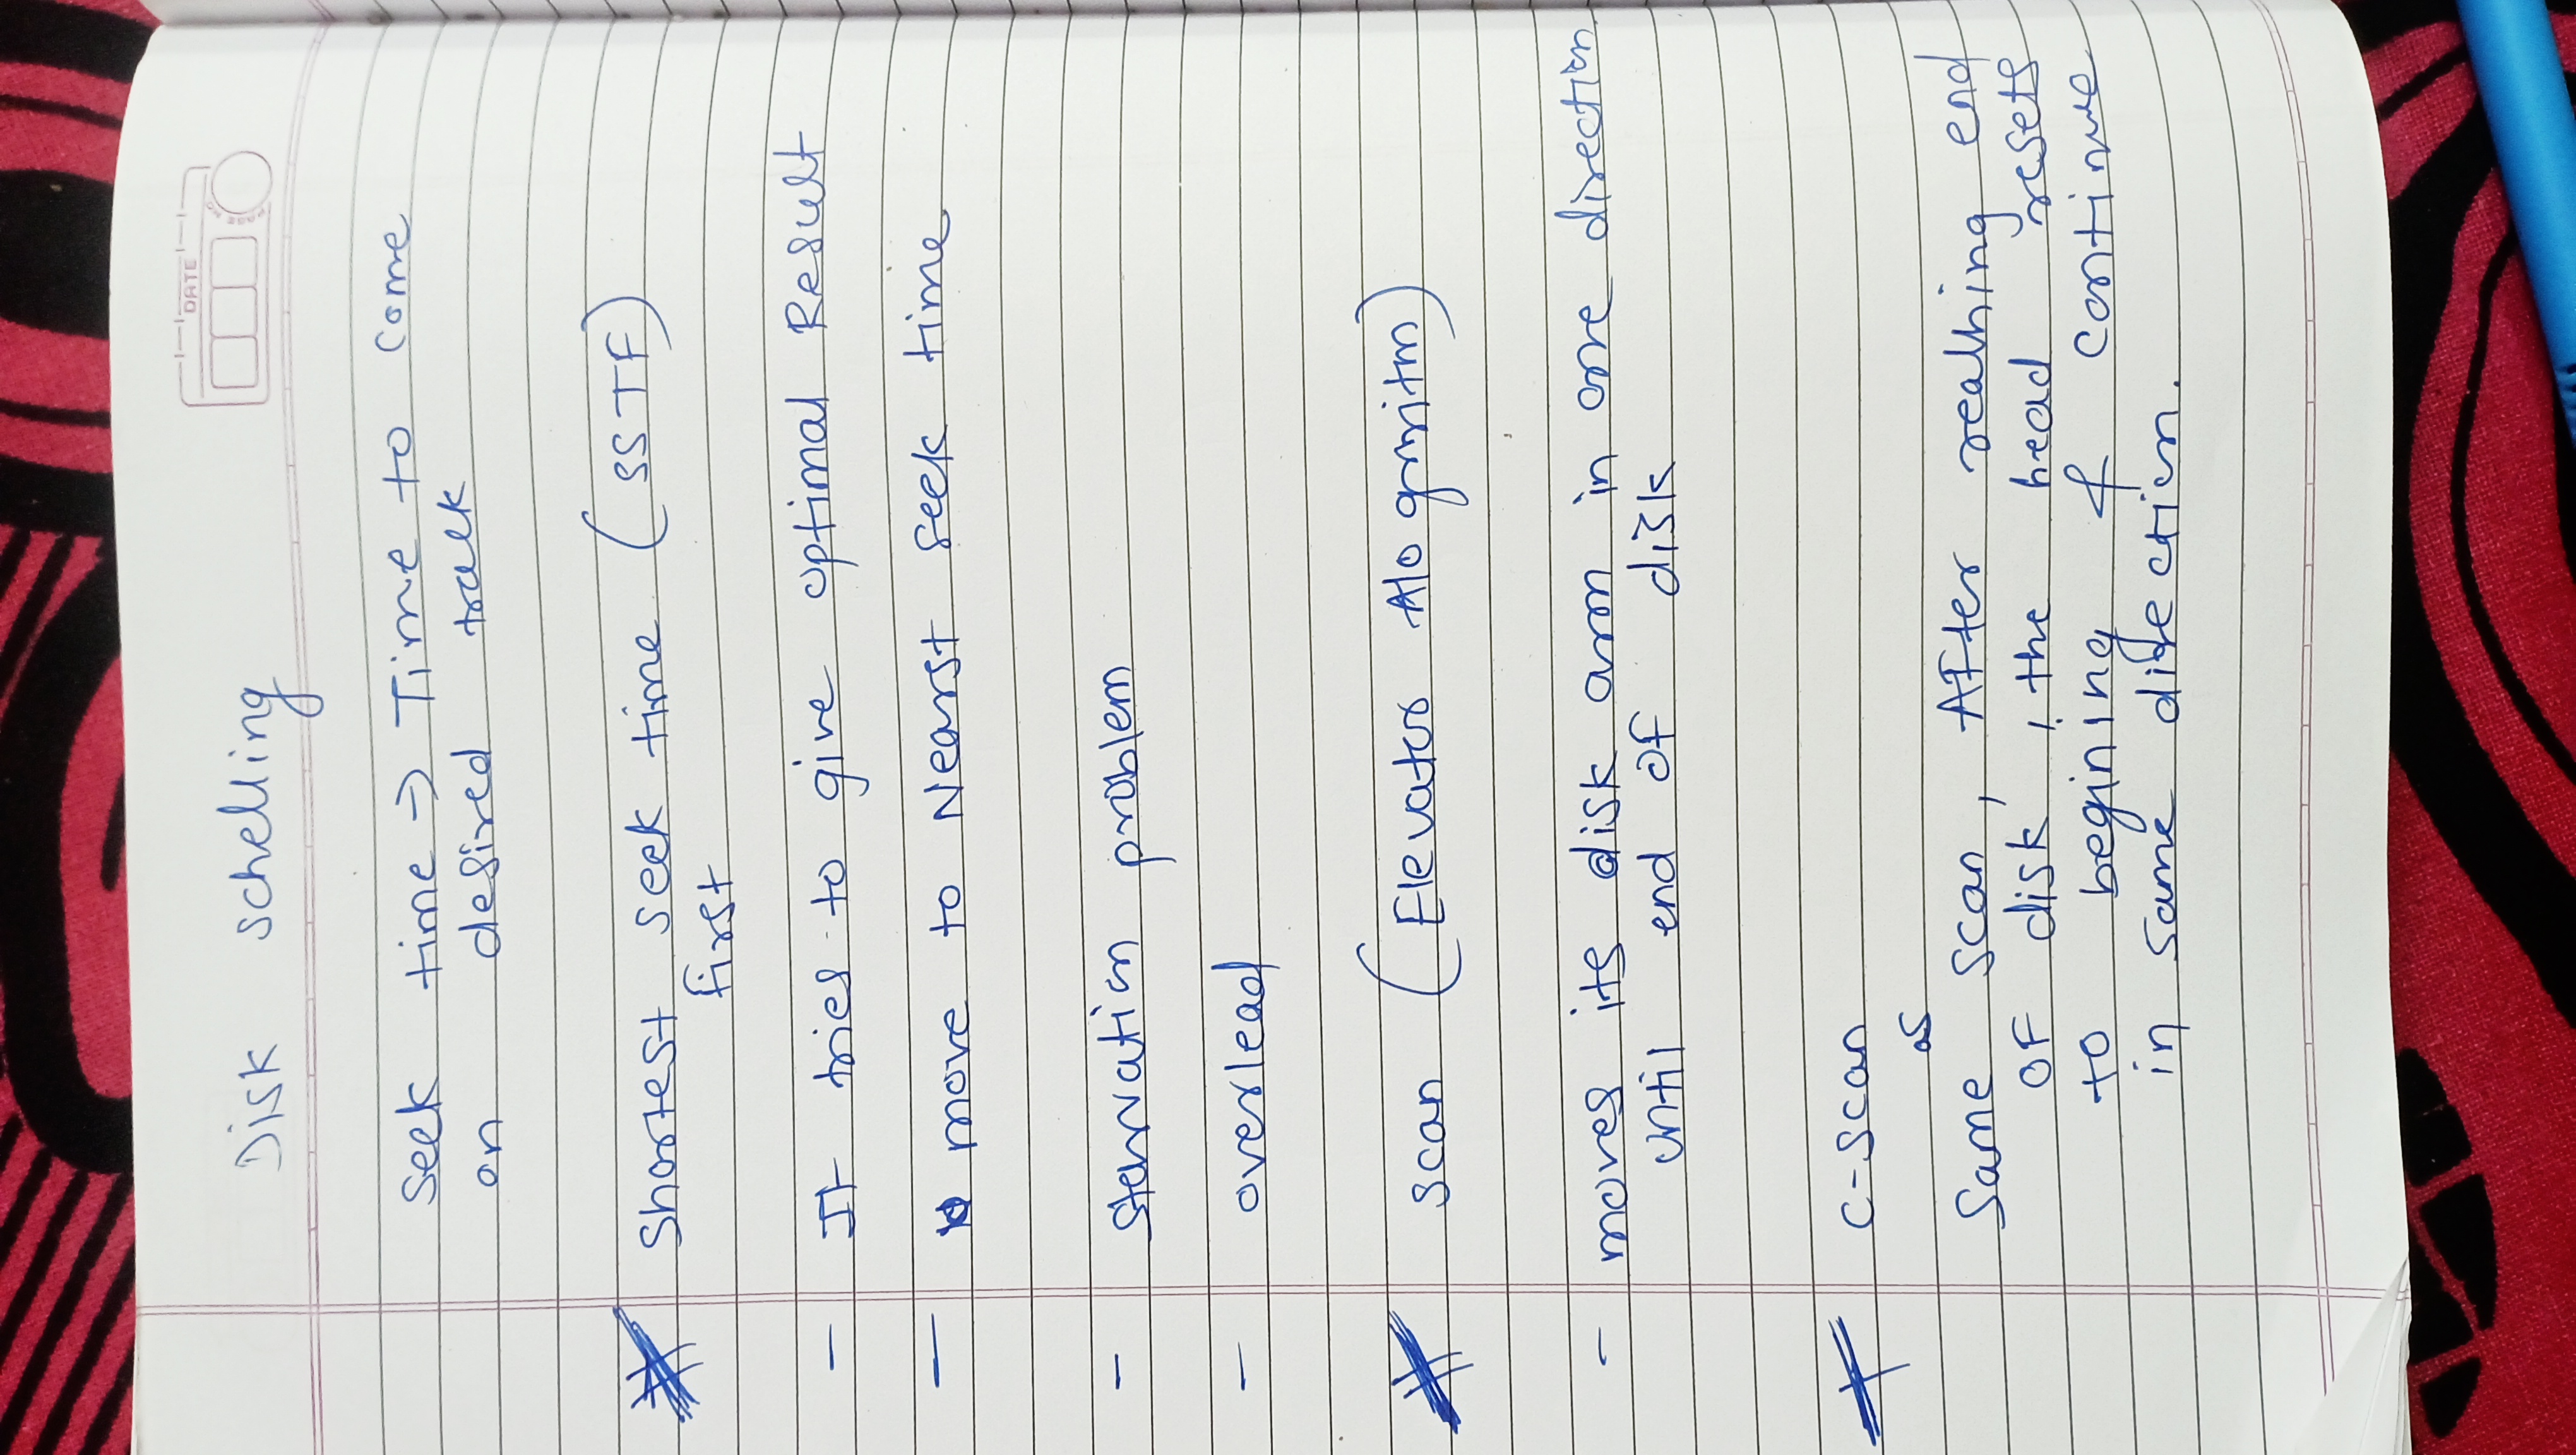 DATE
Disk schelling
Seek time → Time to come
on desired track
* Shortest seek time (SSTF)
first
- It tries to give optimal Result
- move to Nearst seek time
- starvation problem
- overlead
* scan (Elevator Alogrnitm)
- moves its disk arm in one direction
until end of disk
* C-Scan
as
Same scan, After reaching end
OF disk, the head resets
to begining & continue
in same direction.